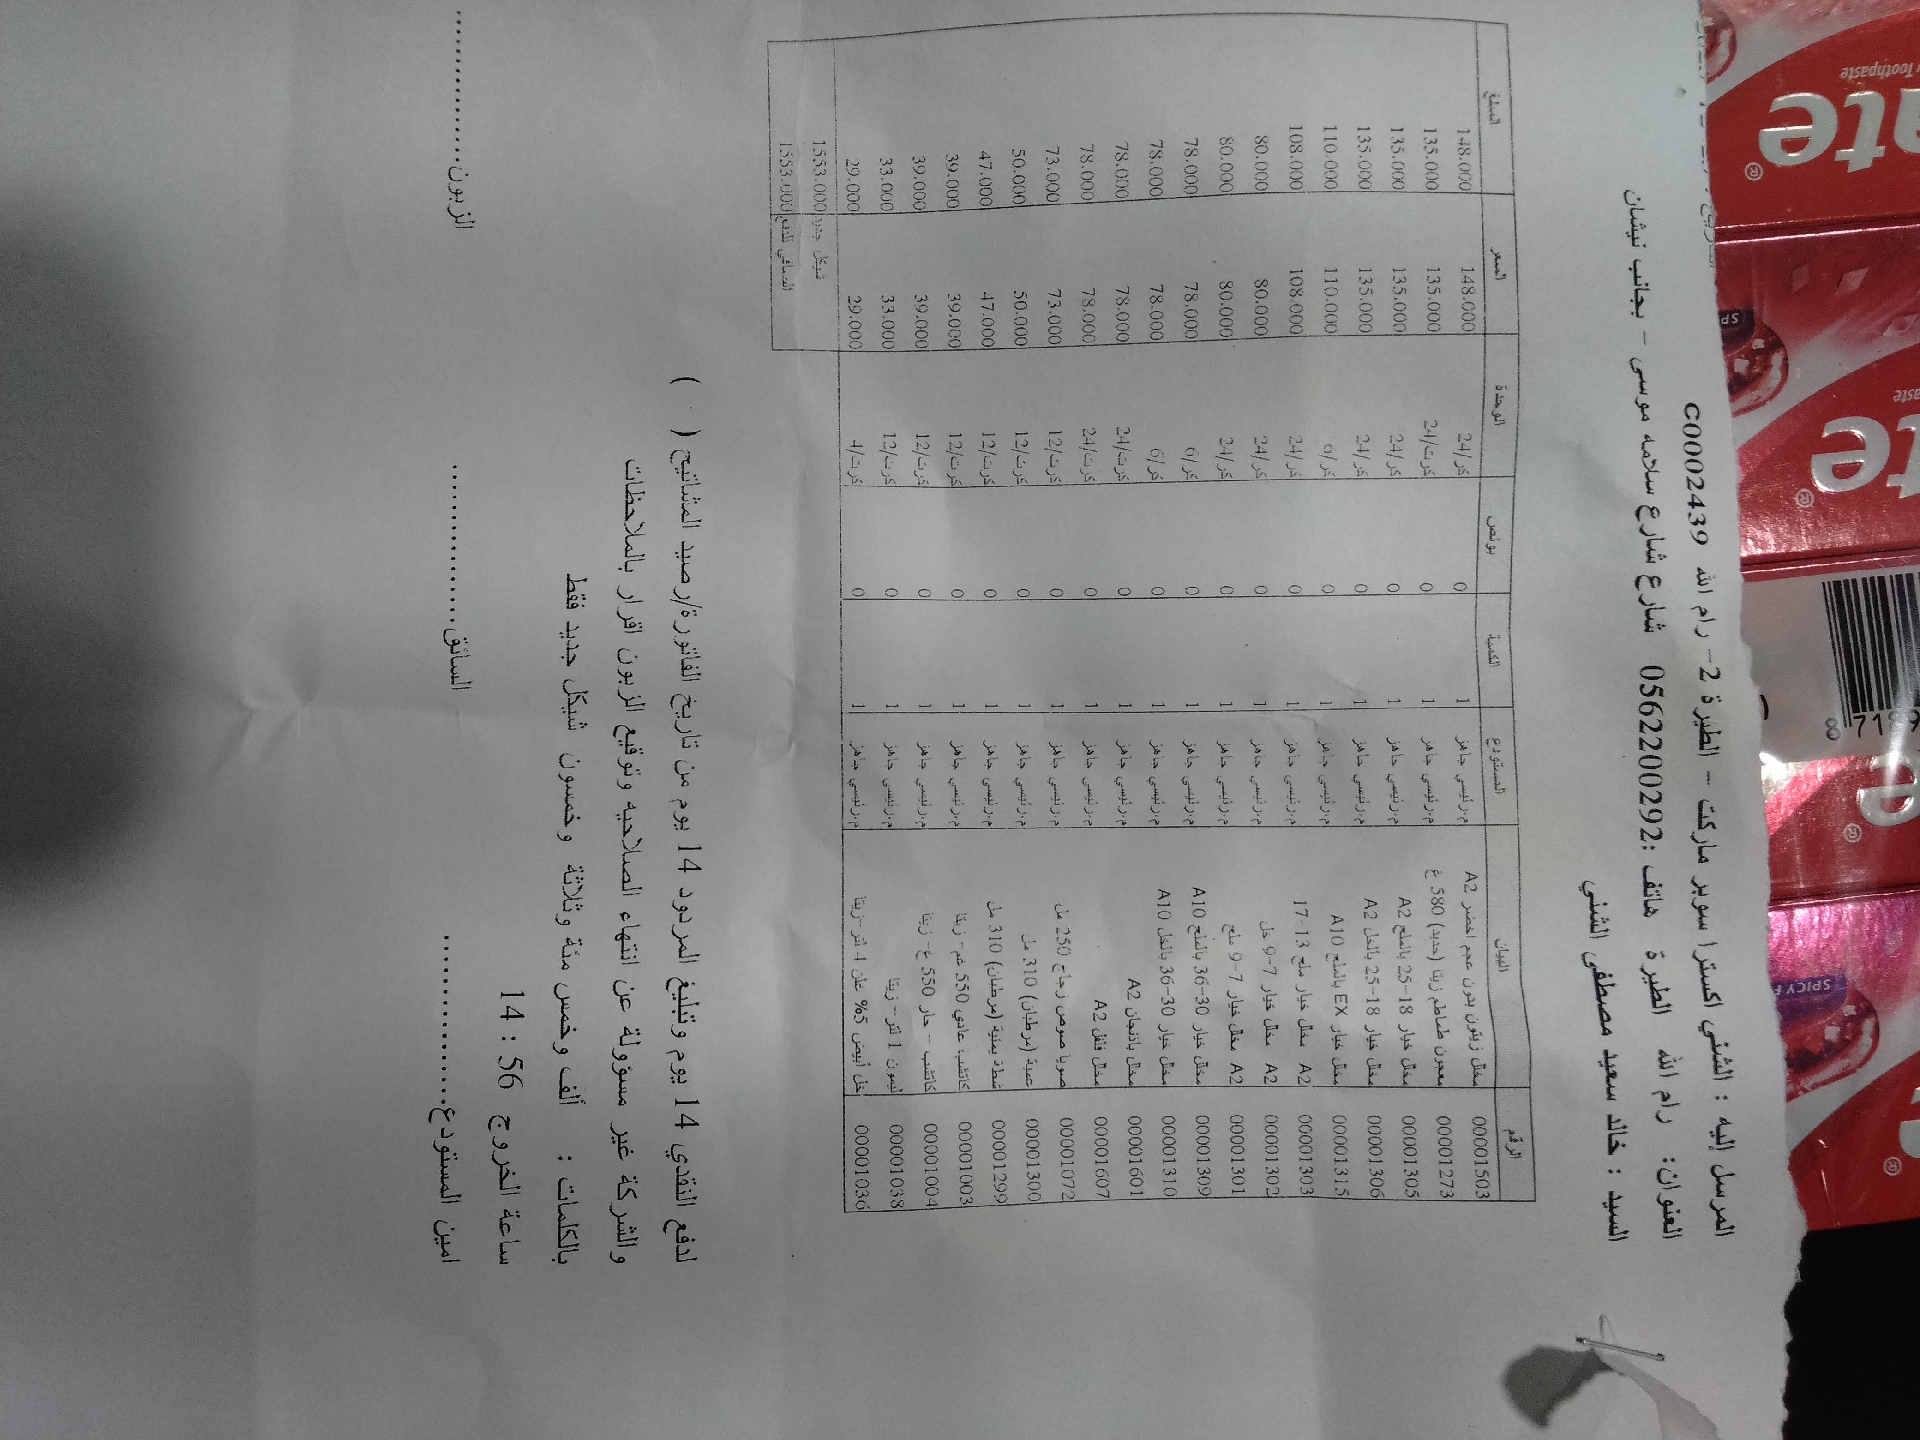 المرسل إليه : الشني اكسترا سوبر ماركت - الطيرة 2- رام الله C0002439
العنوان: رام الله الطيرة هاتف :0562200292 شارع شارع سلامه موسى - بجانب نيشان
السيد : خالد سعيد مصطفى الشني
الرقم البيان المستودع الكمية بونص الوحدة السعر المبلغ
00001503 مخلل زيتون بدون عجم اخضر A2 م.رئيسي جاهز 1 0 كر/24 148.000 148.000
00001273 معجون طماطم زيتا (حديد) 580 غ م.رئيسي جاهز 1 0 كرت/24 135.000 135.000
00001305 مخلل خيار 18-25 بالملح A2 م.رئيسي جاهز 1 0 كر/24 135.000 135.000
00001306 مخلل خيار 18-25 بالخل A2 م.رئيسي جاهز 1 0 كر/24 135.000 135.000
00001315 مخلل خيار EX بالملح A10 م.رئيسي جاهز 1 0 كر/6 110.000 110.000
00001303 A2 مخلل خيار ملح 13-17 م.رئيسي جاهز 1 0 كر/24 108.000 108.000
00001302 A2 مخلل خيار 7-9 خل م.رئيسي جاهز 1 0 كر/24 80.000 80.000
00001301 A2 مخلل خيار 7-9 ملح م.رئيسي جاهز 1 0 كر/24 80.000 80.000
00001309 مخلل خيار 30-36 بالملح A10 م.رئيسي جاهز 1 0 كر/6 78.000 78.000
00001310 مخلل خيار 30-36 بالخل A10 م.رئيسي جاهز 1 0 كر/6 78.000 78.000
00001601 مخلل باذنجان A2 م.رئيسي جاهز 1 0 كرت/24 78.000 78.000
00001607 مخلل فلفل A2 م.رئيسي جاهز 1 0 كرت/24 78.000 78.000
00001072 صويا صوص زجاج 250 مل م.رئيسي جاهز 1 0 كرت/12 73.000 73.000
00001300 عمبة (مرطبان) 310 مل م.رئيسي جاهز 1 0 كرت/12 50.000 50.000
00001299 شطة يمنية (مرطبان) 310 مل م.رئيسي جاهز 1 0 كرت/12 47.000 47.000
00001003 كاتشب عادي 550 غم- زيتا م.رئيسي جاهز 1 0 كرت/12 39.000 39.000
00001004 كاتشب - حار 550 غ- زيتا م.رئيسي جاهز 1 0 كرت/12 39.000 39.000
00001038 ليمون 1 لتر- زيتا م.رئيسي جاهز 1 0 كرت/12 33.000 33.000
00001036 خل أبيض 5% غلن 4 لتر -زيتا م.رئيسي جاهز 1 0 كرت/4 29.000 29.000
شيكل جديد 1553.000
الصافي للدفع 1553.000
لدفع النقدي 14 يوم وتبليغ المردود 14 يوم من تاريخ الفاتورة/رصيد المشاتيح ( )
والشركة غير مسؤولة عن انتهاء الصلاحيه وتوقيع الزبون اقرار بالملاحظات
بالكلمات : ألف وخمس مئة وثلاثة وخمسون شيكل جديد فقط
ساعة الخروج 14 : 56
امين المستودع.............. السائق.............. الزبون..............
Toothpaste
ate
®
SPICY
8 7189